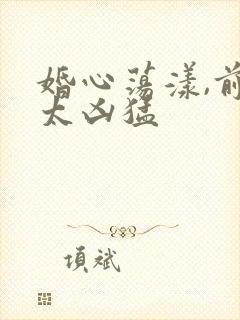 婚心荡漾,前
太凶猛
項斌